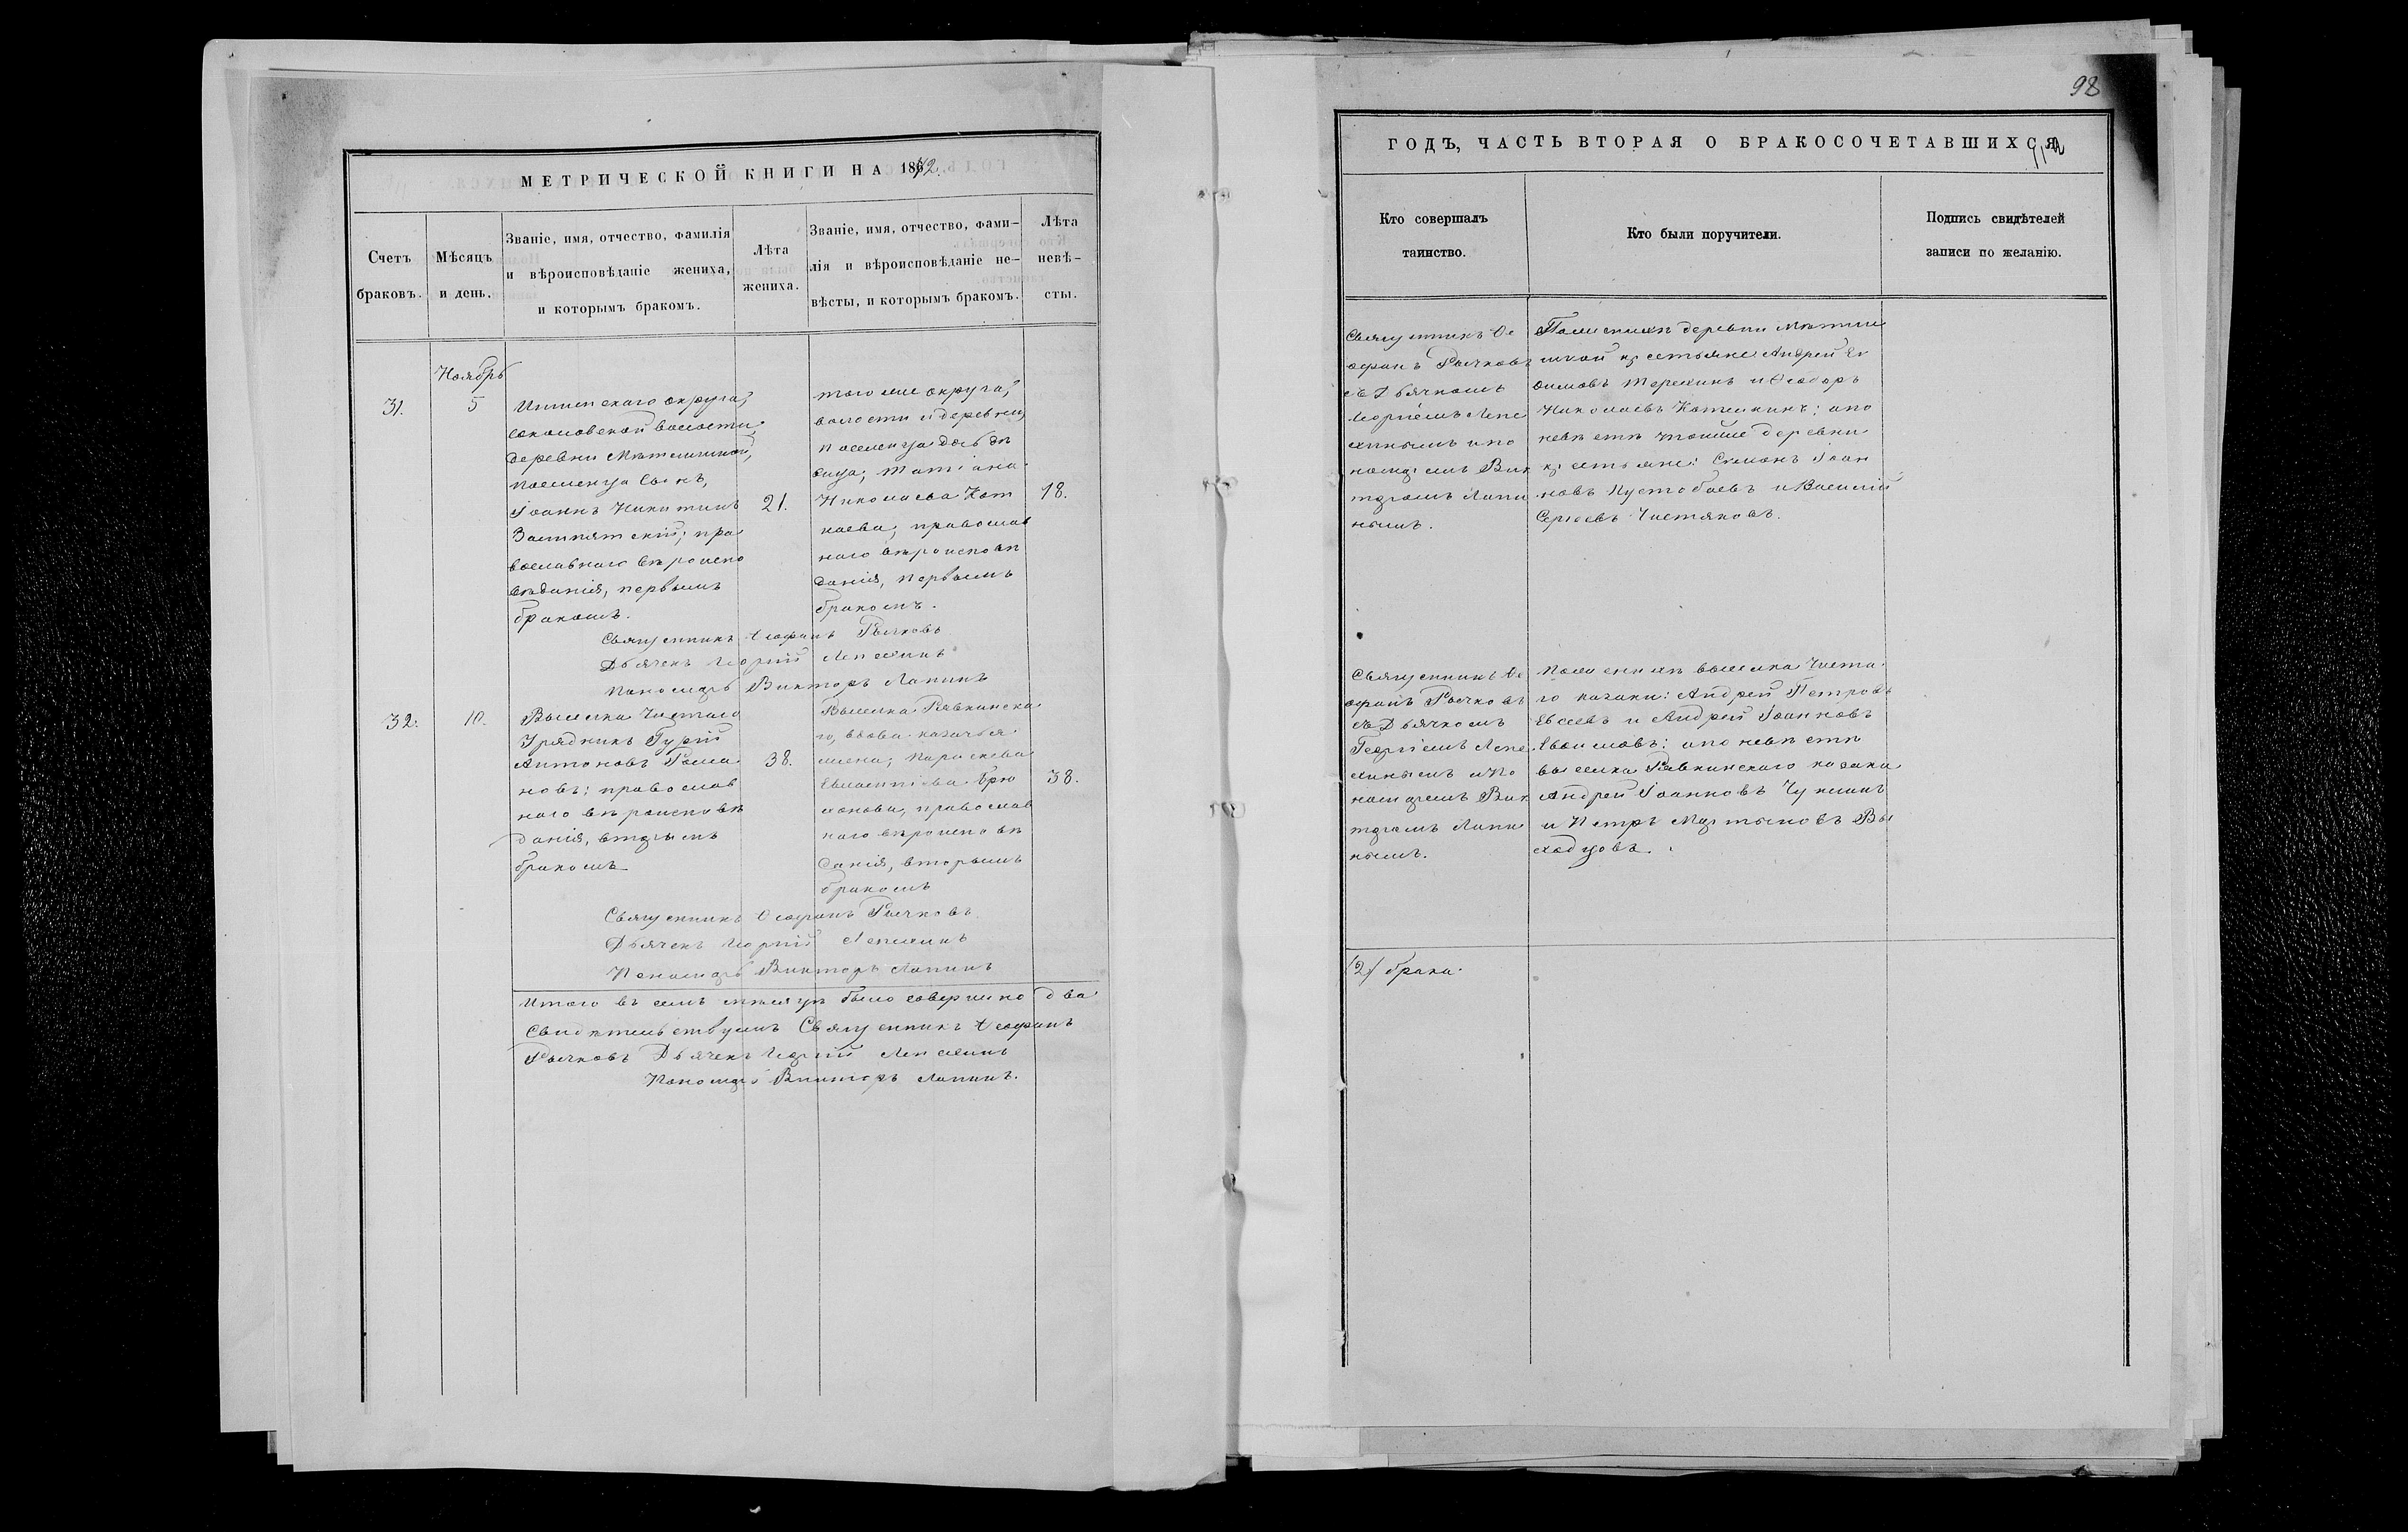 98
МЕТРИЧЕСКОЙ КНИГИ НА 1872.
Счетъ браковъ.
Мѣсяцъ и день.
Званіе, имя, отчество, фамилія
и вѣроисповѣданіе жениха,
и которымъ бракомъ.
Лѣта жениха.
Званіе, имя, отчество, фами-
лія и вѣроисповѣданіе не-
вѣсты, и которымъ бракомъ.
Лѣта невѣ-
сты.
Ноябрь
31.
5
Ишимскаго округа,
Соколовской волости,
деревни
поселенца сынъ,
Іоаннъ Никитинъ
пра
вославнаго вѣроиспо
вѣданія, первымъ
бракомъ.
21.
того же округа,
волости и деревни,
поселенца дочь дѣ
вица, Татіана
Николаева
православ
наго вѣроисповѣ
данія, первымъ
бракомъ.
18.
Священникъ Ѳеофанъ Рычковъ
Дьячекъ Георгій Лепехинъ
Пономарь Викторъ Лапинъ
32.
10.
Выселка Чистаго
Урядникъ Гурій
Антоновъ Рома
новъ; православ
наго вѣроисповѣ
данія, вторымъ
бракомъ
38.
Выселка Рявкинска
го, вдова казачья
жена, Параскева
православ
наго вѣроисповѣ
данія, вторымъ
бракомъ
38.
Священникъ Ѳеофанъ Рычковъ
Дьячекъ Георгій Лепехинъ
Пономарь Викторъ Лапинъ
Итого въ семъ мѣсяцѣ было совершено два
Свидѣтельствуемъ Священникъ Ѳеофанъ
Рычковъ Дьячекъ Георгій Лепехинъ
Пономарь Викторъ Лапинъ.
ГОДЪ, ЧАСТЬ ВТОРАЯ О БРАКОСОЧЕТАВШИХСЯ
Кто совершалъ
таинство.
Кто были поручители.
Подпись свидѣтелей
записи по желанію.
Священникъ Ѳе
офанъ Рычковъ
съ Дьячкомъ
Георгіемъ Лепе
хинымъ и по
номаремъ Вик
торомъ Лапи
нымъ.
По женихѣ деревни
крестьяне Андрей Еѳ
имовъ Терехинъ и Ѳеодоръ
Николаевъ а по
невѣстѣ тойже деревни
крестьяне: Симонъ Іоан
новъ Пустобаевъ и Василій
Сергѣевъ Чистяковъ.
Священникъ Ѳе
офанъ Рычковъ
съ Дьячкомъ
Георгіемъ Лепе
хинымъ и По
номаремъ Вик
торомъ Лапи
нымъ.
По женихѣ выселка Чиста
го казаки: Андрей Петровъ
Евсеевъ и Андрей Іоанновъ
а по невѣстѣ
выселка Рявкинскаго казаки
Андрей Іоанновъ
и Петръ Мартыновъ Вы
ходцовъ.
(2) брака.